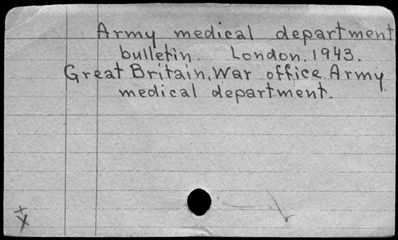 Army medical department
bulletin. London. 1943.
Great Britain, War office. Army
medical department.
x